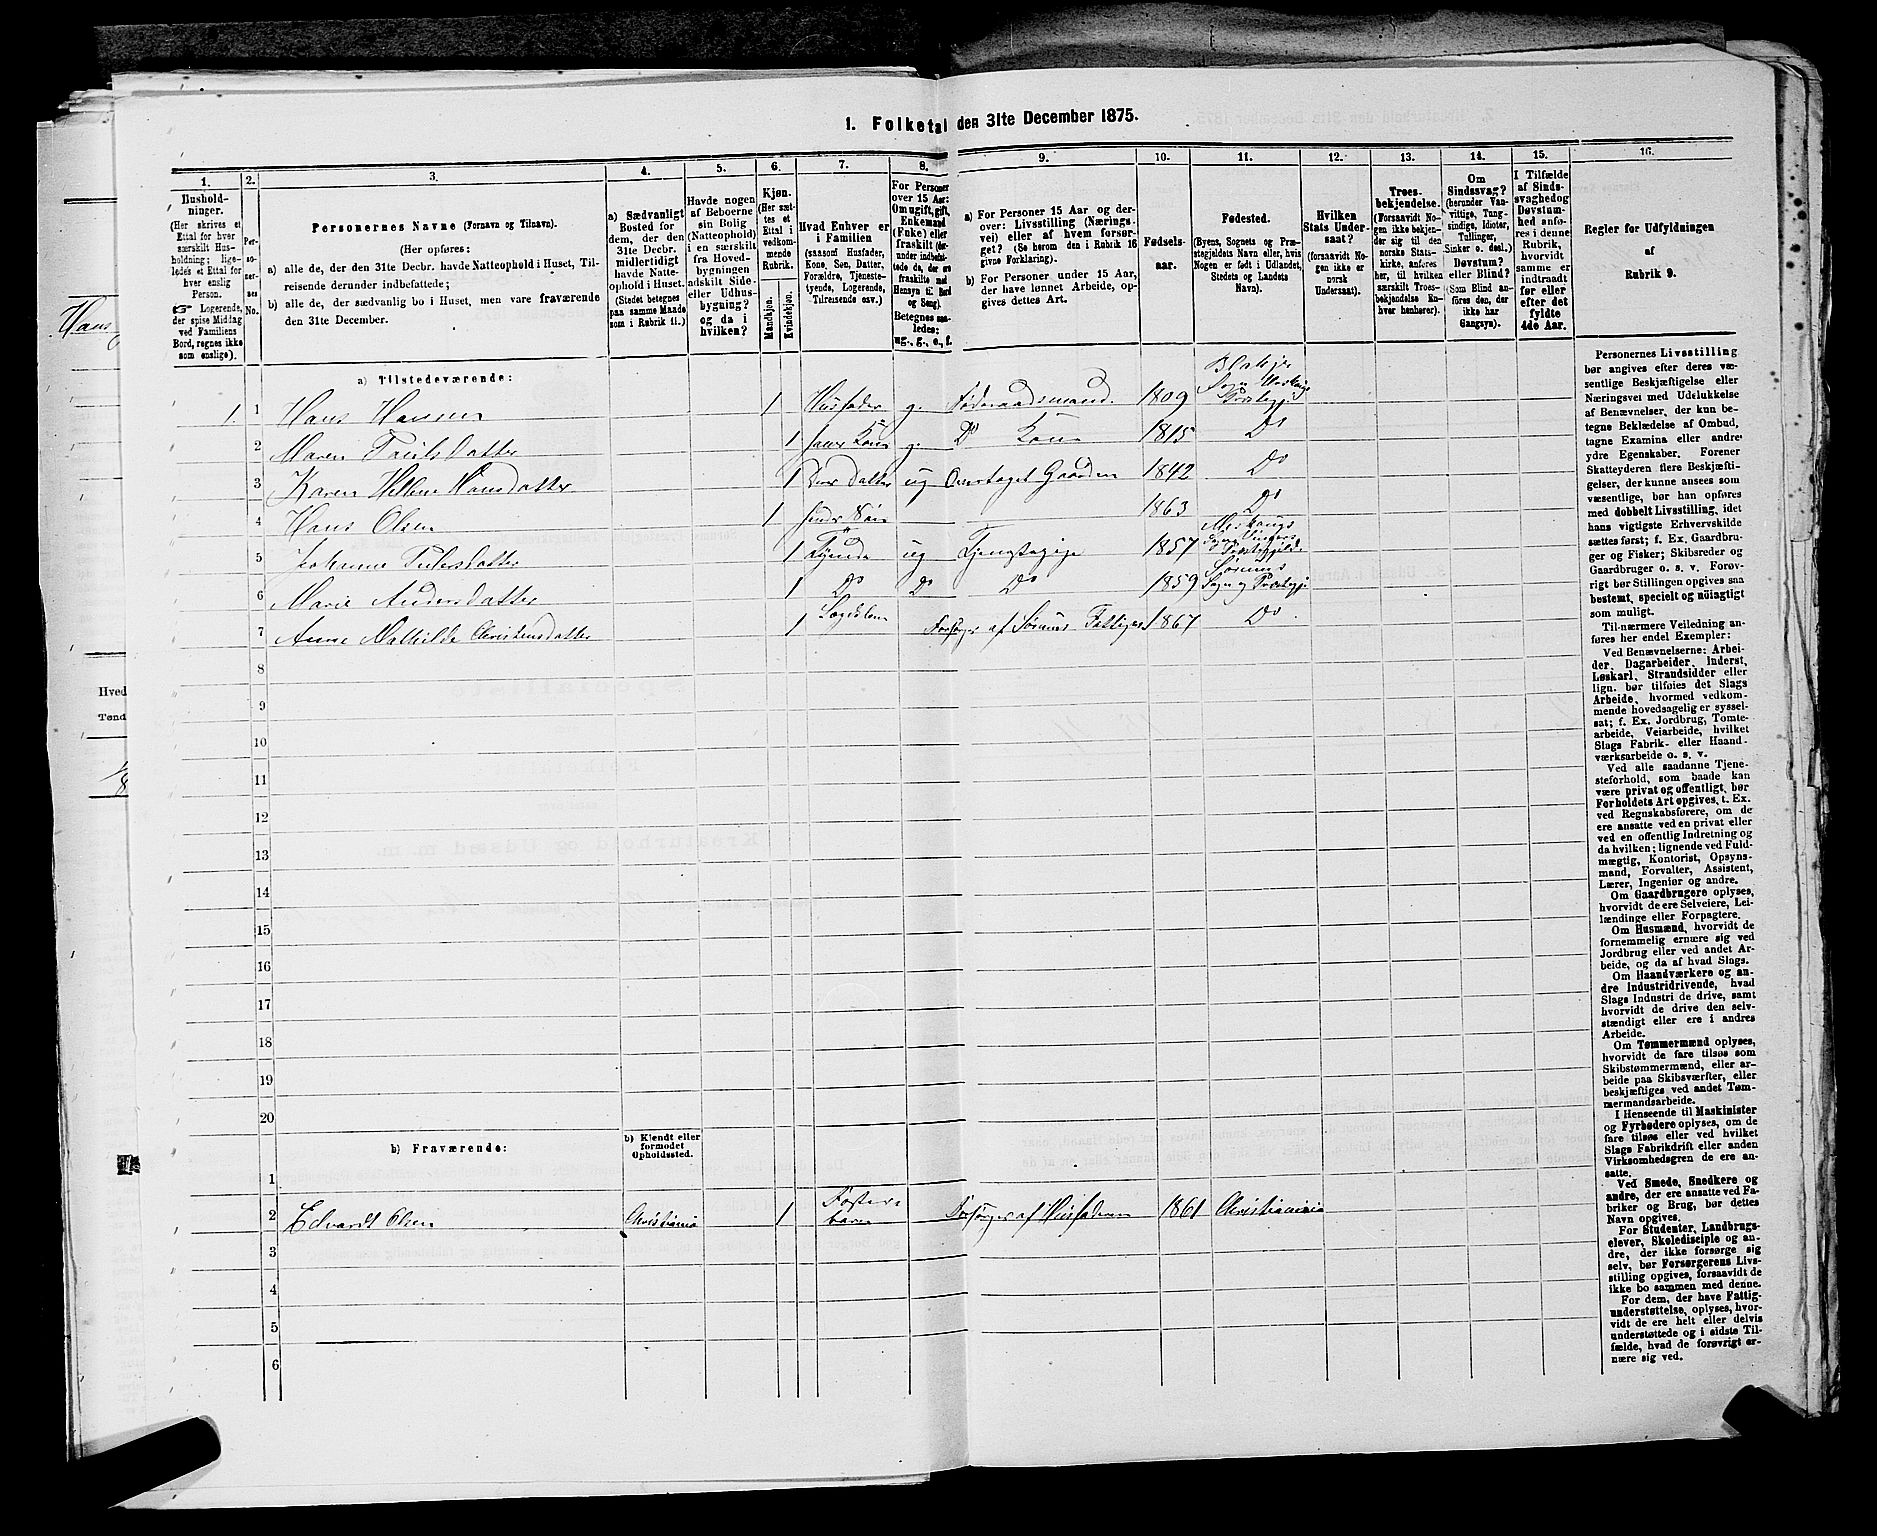 1. Folketal den 31te December 1875.
1.
2.
3.
4.
5.
6.
7.
8.
9.
10.
11.
12.
13.
14.
15.
16.
Hushold-
ninger.
(Her skrives et
Ettal for hver
særskilt Hus-
holdning; lige-
ledes et Ettal for
hver enslig
Person.
☞ Logerende,
der spise Middag
ved Familiens
Bord, regnes ikke
som enslige).
Per-
so-
ner-
nes
No.
Personernes Navne (Fornavn og Tilnavn).
(Her opføres:
a) alle de, der den 31te Decbr. havde Natteophold i Huset, Til-
reisende derunder indbefattede;
b) alle de, der sædvanlig bo i Huset, men vare fraværende
den 31te December.
a) Sædvanligt
Bosted for
dem, der den
31te Decbr.
midlertidigt
havde Natte-
ophold i Huset.
(Stedet betegnes
paa samme Maade
som i Rubrik 11.)
Havde nogen
af Beboerne
sin Bolig
(Natteophold)
i en særskilt
fra Hoved-
bygningen
adskilt Side-
eller Udhus-
bygning?
og da i
hvilken?
Kjøn.
(Her sæt-
tes et
Ettal i
vedkom-
mende
Rubrik.
Mandkjøn.
Kvindekjøn.
Hvad Enhver er
i Familien
(saasom Husfader,
Kone, Søn, Datter,
Forældre, Tjeneste-
tyende, Logerende,
Tilreisende osv.)
For Personer
over 15 Aar:
Om ugift, gift,
Enkemand
(Enke) eller
fraskilt (der-
under indbefat-
tede de, der ere
fraskilte med
Hensyn til Bord
og Seng).
Betegnes saa-
ledes:
ug., g., e., f.
a) For Personer 15 Aar og der-
over: Livsstilling (Nærings-
vei) eller af hvem forsør-
get? (Se herom den i Rubrik 16
givne Forklaring).
b) For Personer under 15 Aar,
der have lønnet Arbeide, op-
gives dettes Art.
Fødsels-
aar.
Fødested.
(Byens, Sognets og Præ-
stegjeldets Navn eller, hvis
Nogen er født i Udlandet,
Stedets og Landets
Navn).
Hvilken
Stats Under-
saat?
(forsaavidt No-
gen ikke er
norsk
Undersaat).
Troes-
bekjendelse.
(Forsaavidt No-
gen ikke bekjen-
der sig til den
norske Stats-
kirke, anføres
her, til hvilken
særskilt Troes-
bekjendelse En-
hver henhører).
Om
Sindssvag?
(herunder Van-
vittige, Tung-
sindige, Idioter,
Tullinger,
Sinker o. desl.)
Døvstum?
eller Blind?
(Som Blind an-
føres den, der
ikke har
Gangsyn).
I Tilfælde
af Sinds-
svaghed og
Døvstum-
hed anfø-
res i denne
Rubrik,
hvorvidt
samme er
indtraadt
før eller
efter det
fyldte
4de Aar.
Regler for Udfyldningen
af
Rubrik 9.
a) Tilstedeværende:
1. 1 Hans Hansen 1 Husfader g. Føderaadsmand. 1809 Blakjer Sogn Urskougs Præstegj.
2 Maren Poulsdatter 1 hans Kone g. Do Kone 1815 Do
3 Karen Hellene Hansdatter 1 Deres datter ug Overtaget Gaarden 1842 Do
4 Hans Olsen 1 hendes Søn 1863 Do
5 Johanne 1 Tyende ug Tjenstepige 1857
6 Marie Andersdatter 1 Do Do Do 1859 Sørums Sogn og Præstegj.
7 Anne Mathilde Christensdatter 1 Lægdslem Forsørges af Sørums 1867 Do
8
9
10
11
12
13
14
15
16
17
18
19
20
b) Fraværende:
b) Kjendt eller
formodet
Opholdssted.
1
2 Edvardt Olsen Christiania 1 Fosters barn Forsørges af Husfaderen 1861 Christiania
3
4
5
6
Personernes Livsstilling
bør angives efter deres væ-
sentlige Beskjæftigelse eller
Næringsvei med Udelukkelse
af Benævnelser, der kun be-
tegne Beklædelse af Ombud,
tagne Examina eller andre
ydre Egenskaber. Forener
Skatteyderen flere Beskjæfti-
gelser, der kunne ansees som
væsentlige, bør han opføres
med dobbelt Livsstilling, idet
hans vigtigste Erhvervskilde
sættes først; f. Ex. Gaardbru-
ger og Fisker; Skibsreder og
Gaardbruger o. s. v. Forøv-
rigt bør Stillingen opgives saa
bestemt, specielt og nøiagtigt
som muligt.
Til nærmere Veiledning an-
føres her endel Exempler:
Ved Benævnelserne: Arbei-
der, Dagarbeider, Inderst,
Løskarl, Strandsidder eller
lign. bør tilføies det Slags
Arbeide, hvormed vedkom-
mende hovedsagelig er syssel-
sat; f. Ex. Jordbrug, Tomte-
arbeide, Veiarbeide, hvilket
Slags Fabrik- eller Haand-
værksarbeide o. s. v.
Ved alle saadanne Tjene-
steforhold, som baade kan
være privat og offentligt, bør
Forholdets Art opgives, t. Ex.
ved Regnskabsførere, om de
ere ansatte ved en privat eller
ved en offentlig Indretning og
da hvilken; lignende ved Fuld-
mægtig, Kontorist, Opsyns-
mand, Forvalter, Assistent,
Lærer, Ingeniør og andre.
Om Gaardbrugere oplyses,
hvorvidt de ere Selveiere, Lei-
lændinge eller Forpagtere.
Om Husmænd, hvorvidt de
fornemmelig ernære sig ved
Jordbrug eller ved andet Ar-
beide, og da af hvad Slags.
Om Haandværkere og an-
dre Industridrivende, hvad
Slags Industri de drive, samt
hvorvidt de drive den selv-
stændigt eller ere i andres
Arbeide.
Om Tømmermænd oplyses,
hvorvidt de fare tilsøs som
Skibstømmermænd, eller ar-
beide paa Skibsværfter, eller
beskjæftiges ved andet Tøm-
mermandsarbeide.
I Henseende til Maskinister
og Fyrbødere oplyses, om de
fare tilsøs eller ved hvilket
Slags Fabrikdrift eller anden
Virksomhedsgren de ere an-
satte.
Ved Smede, Snedkere og
andre, der ere ansatte ved Fa-
briker og Brug, bør dettes
Navn opgives.
For Studenter, Landbrugs-
elever, Skoledisciple og an-
dre, der ikke forsørge sig
selv, bør Forsørgerens Livs-
stilling opgives, forsaavidt de
ikke bo sammen med denne.
For dem, der have Fattig-
understøttelse, oplyses, hvor-
vidt de ere helt eller delvis
understøttede og i sidste Til-
fælde, hvad de forøvrigt er-
nære sig ved.
Hans
Hved
Tønd